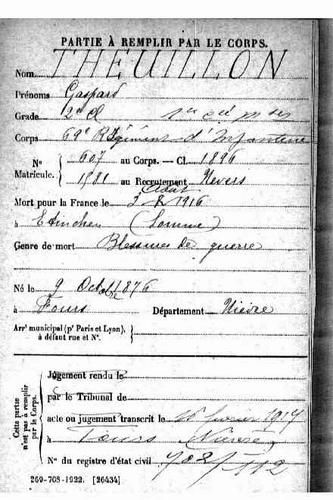 PARTIE À REMPLIR PAR LE CORPS.
Nom THEUILLON
Prénoms Gaspard
Grade 2e Cl 1re Cie Mses
Corps 69e Régiment d'Infanterie
N° 607 au Corps. — Cl. 1896
Matricule. 1981 au Recrutement Nevers
Mort pour la France le 3 Août 1916
à Etinehem (Somme)
Genre de mort Blessures de guerre
Né le 9 Octobre 1876
à Fours Département Nièvre
Arrt municipal (pr Paris et Lyon),
à défaut rue et N°.
Cette partie
n'est pas à remplir
par le Corps.
Jugement rendu le
par le Tribunal de
acte ou jugement transcrit le 16 février 1917
à Fours Nièvre
N° du registre d'état civil 708/112
269-708-1922. [26434]